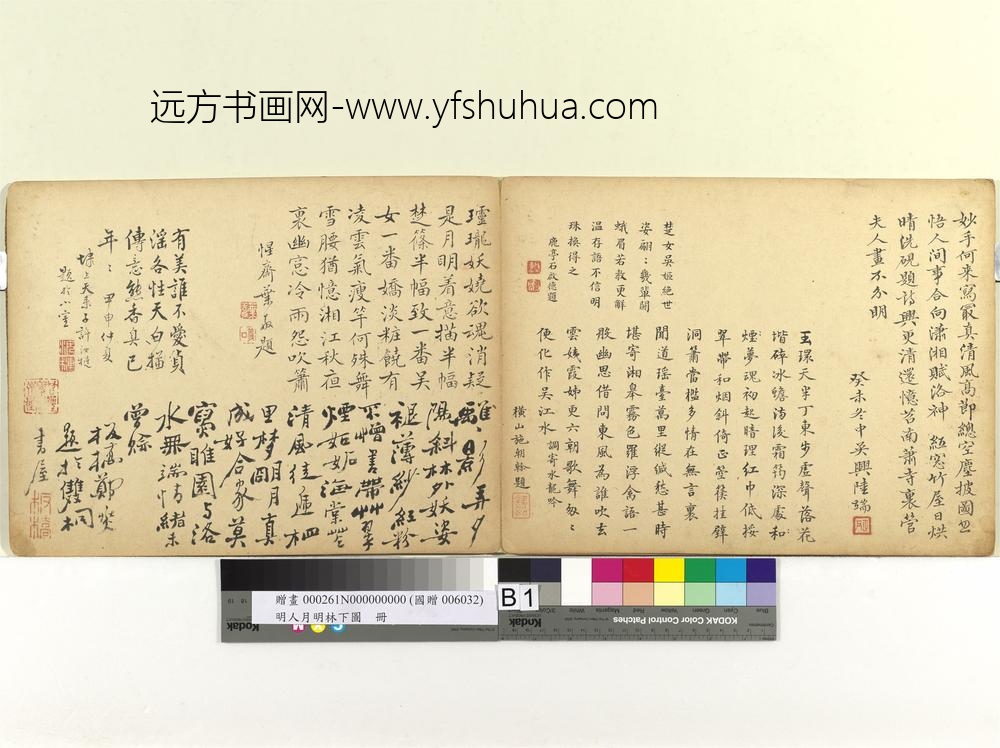 远方书画网-www.yfshuhua.com
妙手何来寫最真清風高節總空塵披圖忽
悟人間事合向瀟湘賦洛神 紅窓竹屋日烘
晴洗硯題詩興更清還憶苕南蕭寺裏管
夫人畫不分明
癸未冬中吳興陸瑞
玉環天半丁東步虛聲落花
堦碎冰蟾清淺霜筠深處和
煙夢瑰初起暗理紅巾低挼
翠帶和烟斜倚正箜篌挂壁
洞簫當檻多情在無言裏
聞道瑶臺萬里縱緘愁甚時
堪寄湘皋霧色羅浮禽語一
般幽思借問東風為誰吹玄
雲姨霞姊更六朝歌舞匆匆
便化作吳江水 調寄水龍吟
橫山施朝幹題
楚女吳姬絕世
姿翩翩幾輩鬬
蛾眉若教更解
温存語不信明
珠換得之
鹿亭石啟徳題
瓏瓏妖嬈欲魂消疑
是月明着意描半幅
楚篠半幅致一番吳
女一番嬌淡粧饒有
凌雲氣瘦竿何殊舞
雪腰猶憶湘江秋夜
裏幽窓冷雨怨吹簫
惺齋葉 題
有美誰不愛貞
淫各性天白描
傳意態香真已
年年 甲申仲夏
題於小室
雛雛影弄夕
陽斜林外妖姿
褪薄紗紅粉
不憎書帶艸翠
煙如妬海棠花
清風徍處
里梦明月真
成好合家莫
寫雎園与洛
水無端情緒未
曾賒
板橋鄭燮
題於雙桐
書屋
贈畫 000261N000000000 (國贈 006032)
明人月明林下圖 冊
B1
Kodak
KODAK Color Control Patches